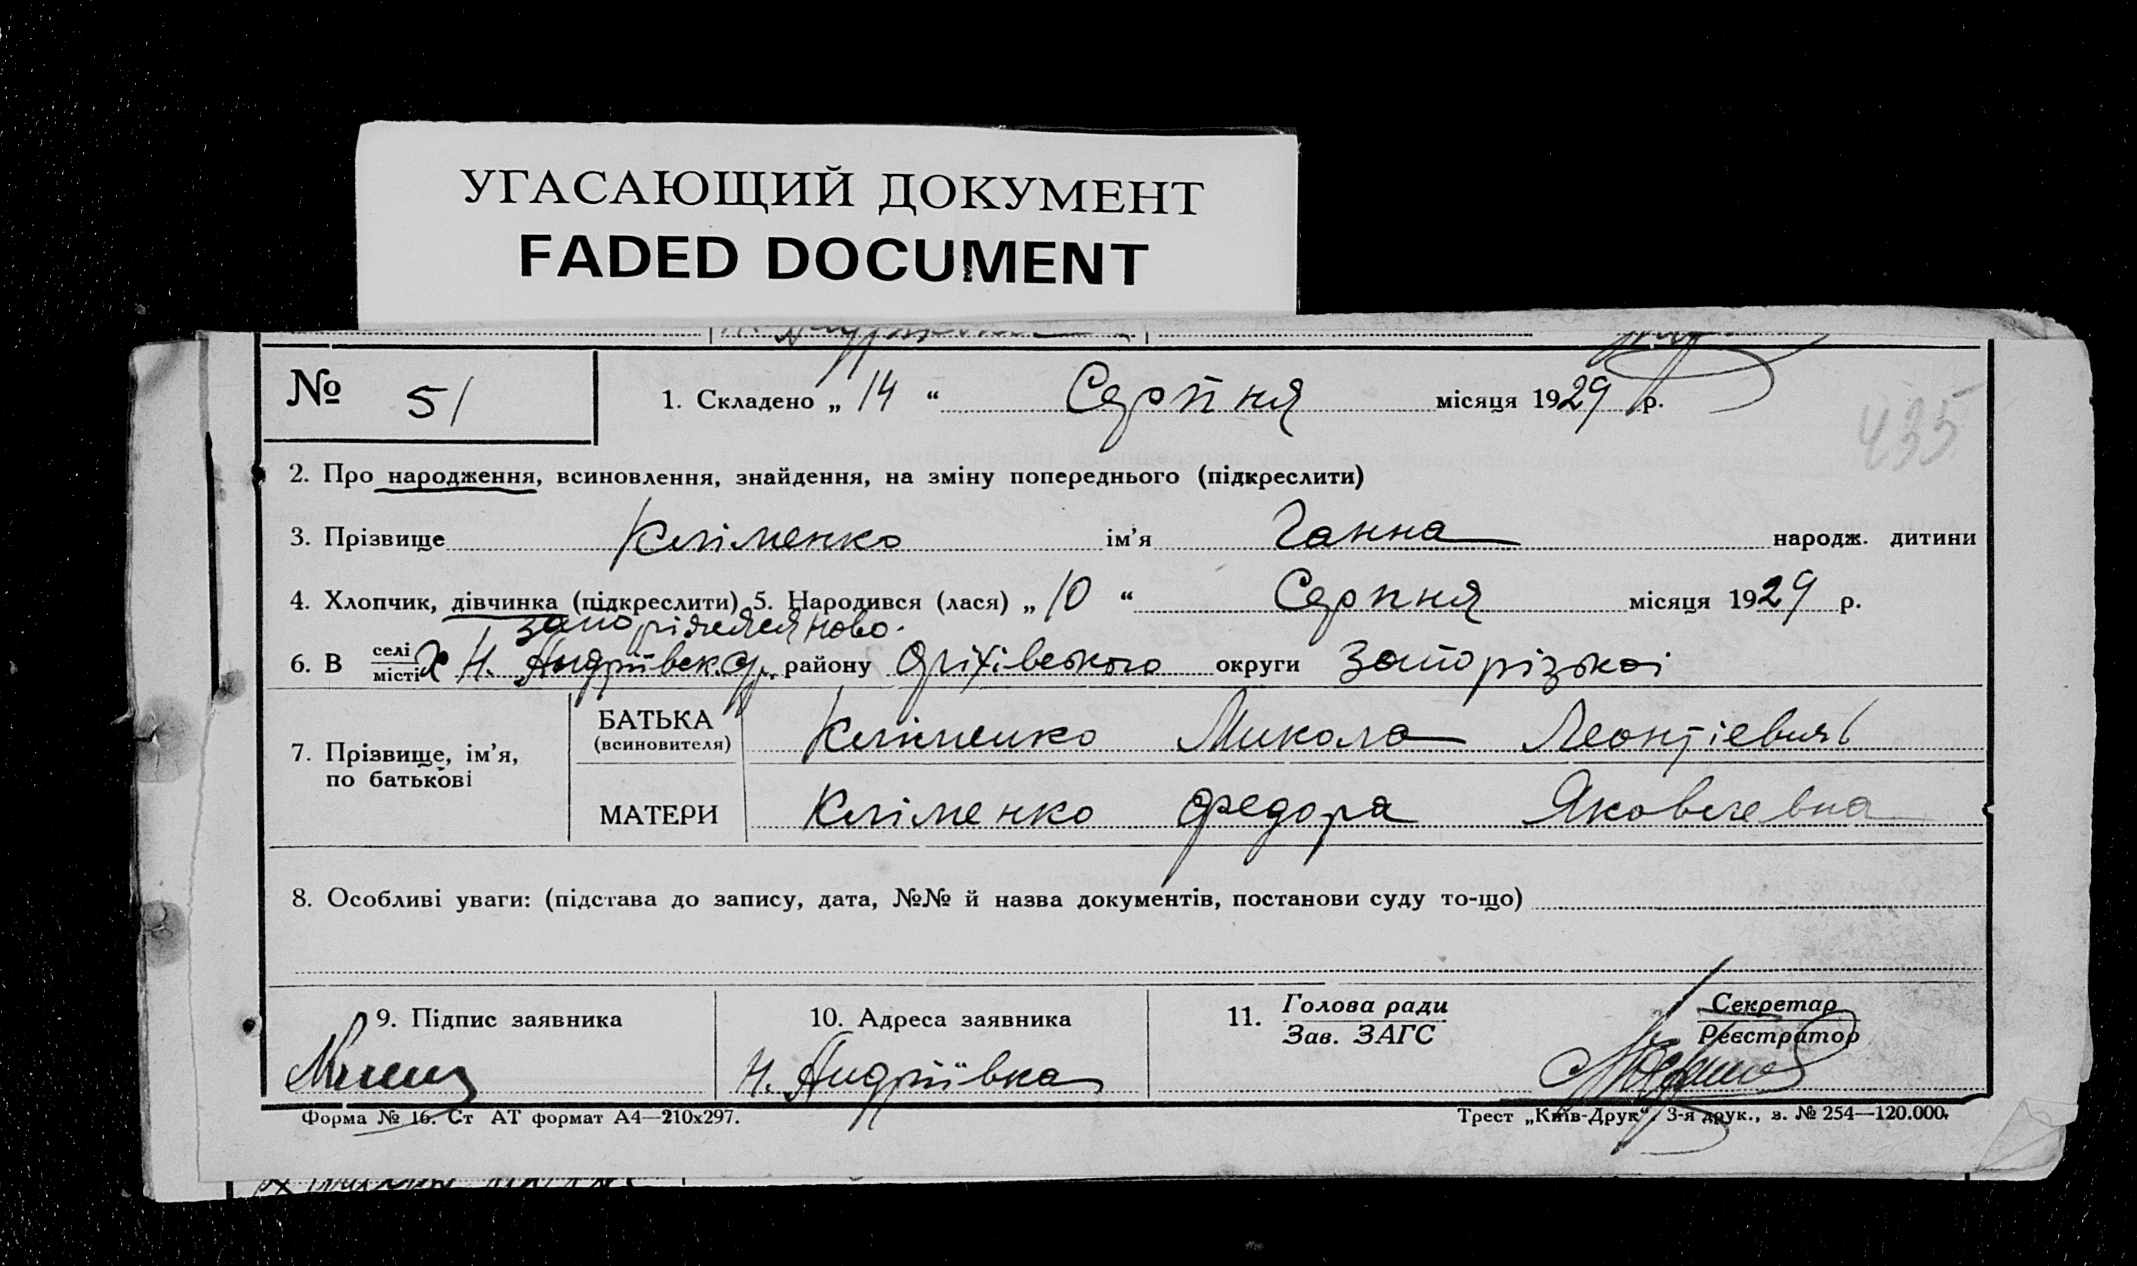 УГАСАЮЩИЙ ДОКУМЕНТ
FADED DOCUMENT
№ 51
1. Складено „ 14 “ Серпня місяця 1929 р.
435
2. Про народження, всиновлення, знайдення, на зміну попереднього (підкреслити)
3. Прізвище Кліменко ім’я Ганна народж. дитини
4. Хлопчик, дівчинка (підкреслити) 5. Народився (лася) „ 10 “ Серпня місяця 1929 р.
6. В селі місті Н. Андрівка району Оріхівського округи Запорізькоі
7. Прізвище, ім’я, по батькові
БАТЬКА (всиновителя) Кліменко Микола Леонтіевич
МАТЕРИ Кліменко Федора Яковлевна
8. Особливі уваги: (підстава до запису, дата, №№ й назва документів, постанови суду то-що)
9. Підпис заявника
10. Адреса заявника
11. Голова ради Зав. ЗАГС
Секретар Реєстратор
Н. Андріївка
Форма № 16. Ст АТ формат А4—210х297.
Трест „Київ-Друк“. 3-я друк., з. № 254—120.000.